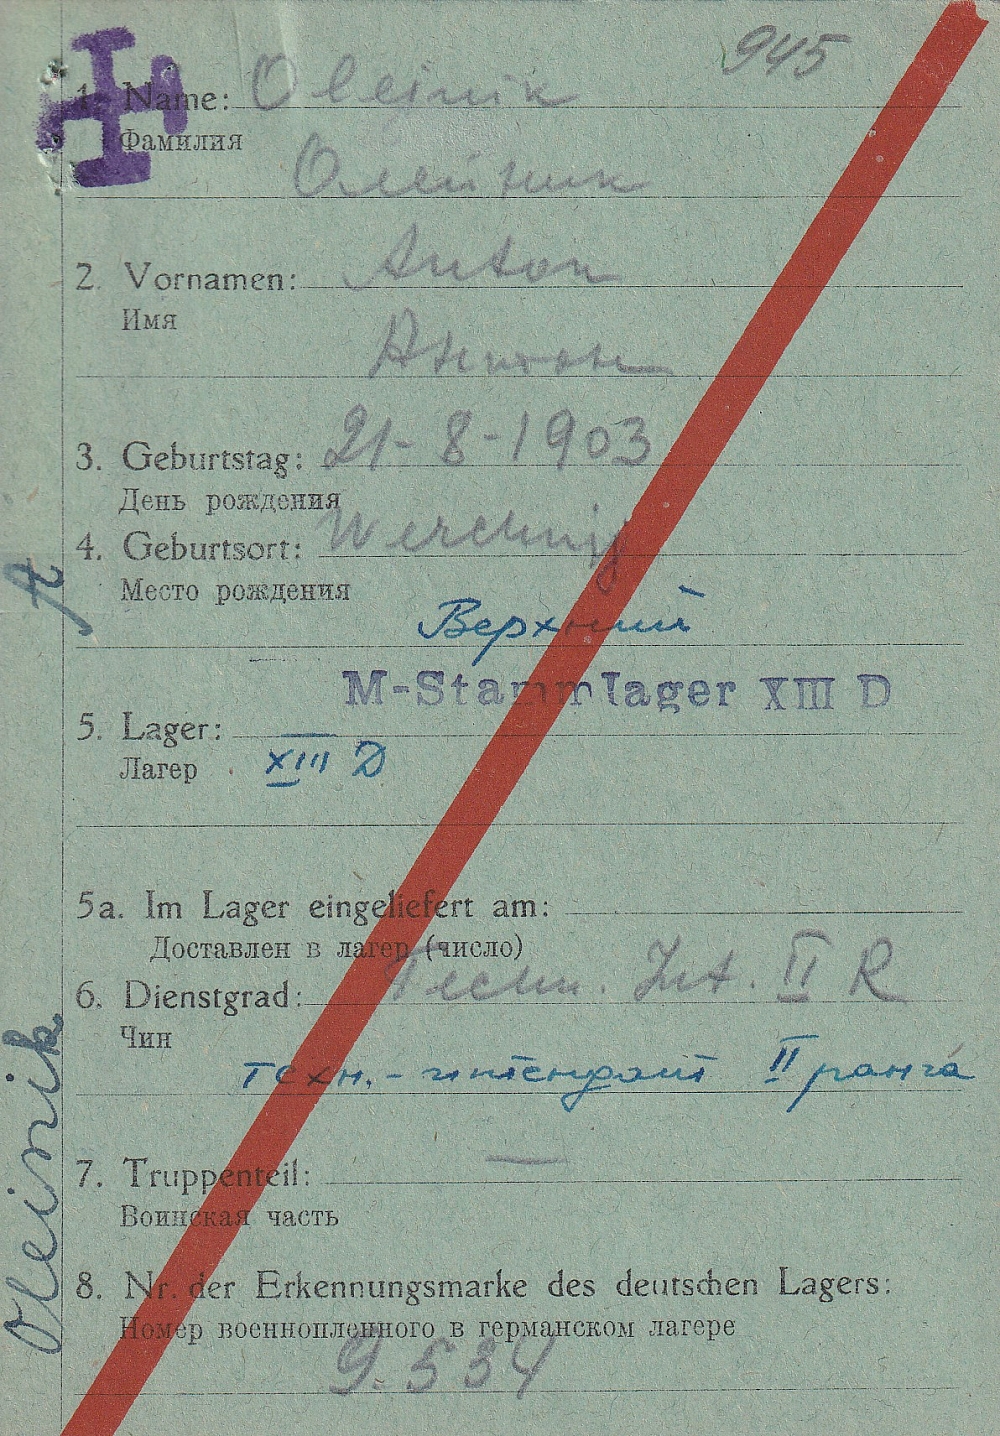 945
1. Name: Olejnik
Фамилия
Олейник
2. Vornamen: Anton
Имя
Антон
3. Geburtstag: 21-8-1903
День рождения
4. Geburtsort: Werchnij
Место рождения
Верхний
M-Stammlager XIII D
5. Lager:
Лагер XIII D
5a. Im Lager eingeliefert am:
Доставлен в лагер (число)
6. Dienstgrad: Techn. Int. II R
Чин
техн.-интендант II ранга
7. Truppenteil: —
Воинская часть
8. Nr. der Erkennungsmarke des deutschen Lagers:
Номер военнопленного в германском лагере
9.534
Oleinik A